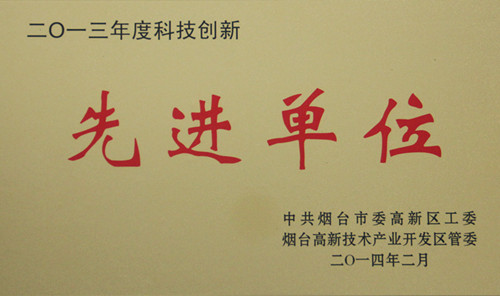 二〇一三年度科技创新
先进单位
中共烟台市委高新区工委
烟台高新技术产业开发区管委
二〇一四年二月